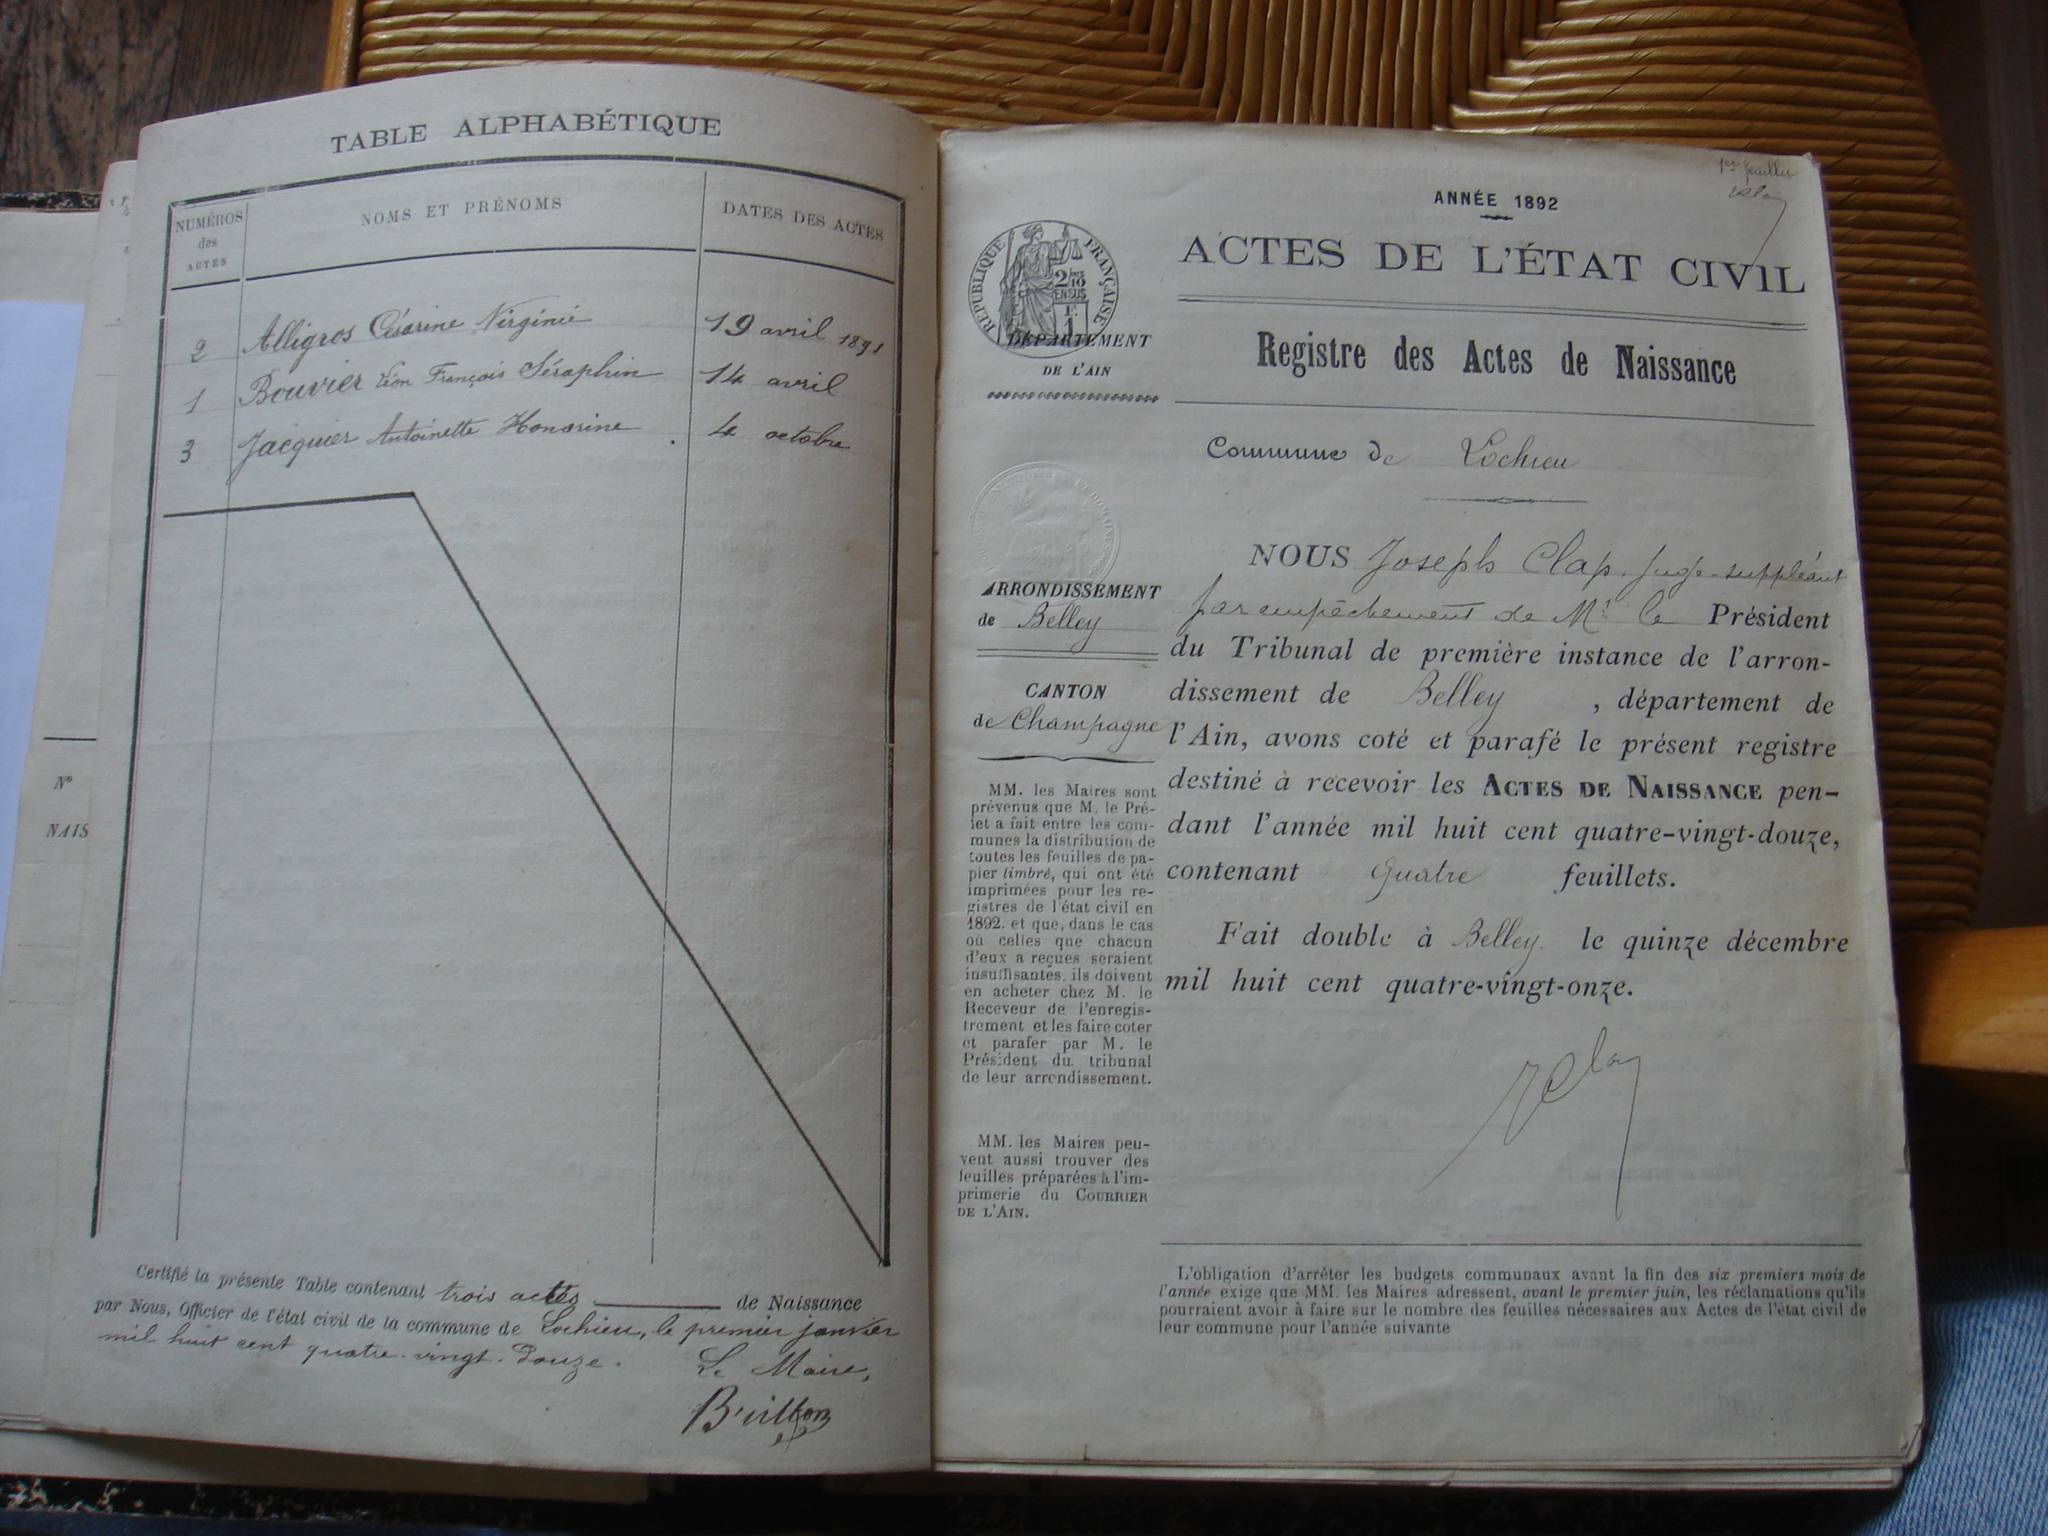 TABLE ALPHABÉTIQUE
NUMÉROS
des
ACTES
NOMS ET PRÉNOMS
DATES DES ACTES
2 Alligros Césarine Virginie 19 avril 1891
1 Bouvier Léon François Séraphin 14 avril
3 Jacquier Antoinette Honorine 4 octobre
Certifié la présente Table contenant trois actes de Naissance
par Nous, Officier de l'état civil de la commune de Lochieu, le premier janvier
mil huit cent quatre-vingt-douze.
Le Maire,
N°
NAIS
1er feuillet
ANNÉE 1892
ACTES DE L'ÉTAT CIVIL
RÉPUBLIQUE FRANÇAISE
2/10
EN SUS
1 F.
DÉPARTEMENT
DE L'AIN
Registre des Actes de Naissance
Commune de Lochieu
ARRONDISSEMENT
de Belley
CANTON
de Champagne
MM. les Maires sont
prévenus que M. le Pré-
fet a fait entre les com-
munes la distribution de
toutes les feuilles de pa-
pier timbré, qui ont été
imprimées pour les re-
gistres de l'état civil en
1892. et que, dans le cas
où celles que chacun
d'eux a reçues seraient
insuffisantes, ils doivent
en acheter chez M. le
Receveur de l'enregis-
trement et les faire coter
et parafer par M. le
Président du tribunal
de leur arrondissement.
MM. les Maires peu-
vent aussi trouver des
feuilles préparées à l'im-
primerie du COURRIER
DE L'AIN.
NOUS Joseph Clap. Juge-suppléant
par empêchement de Mr le Président
du Tribunal de première instance de l'arron-
dissement de Belley, département de
l'Ain, avons coté et parafé le présent registre
destiné à recevoir les ACTES DE NAISSANCE pen-
dant l'année mil huit cent quatre-vingt-douze,
contenant Quatre feuillets.
Fait double à Belley. le quinze décembre
mil huit cent quatre-vingt-onze.
L'obligation d'arrêter les budgets communaux avant la fin des six premiers mois de
l'année exige que MM. les Maires adressent, avant le premier juin, les réclamations qu'ils
pourraient avoir à faire sur le nombre des feuilles nécessaires aux Actes de l'état civil de
leur commune pour l'année suivante